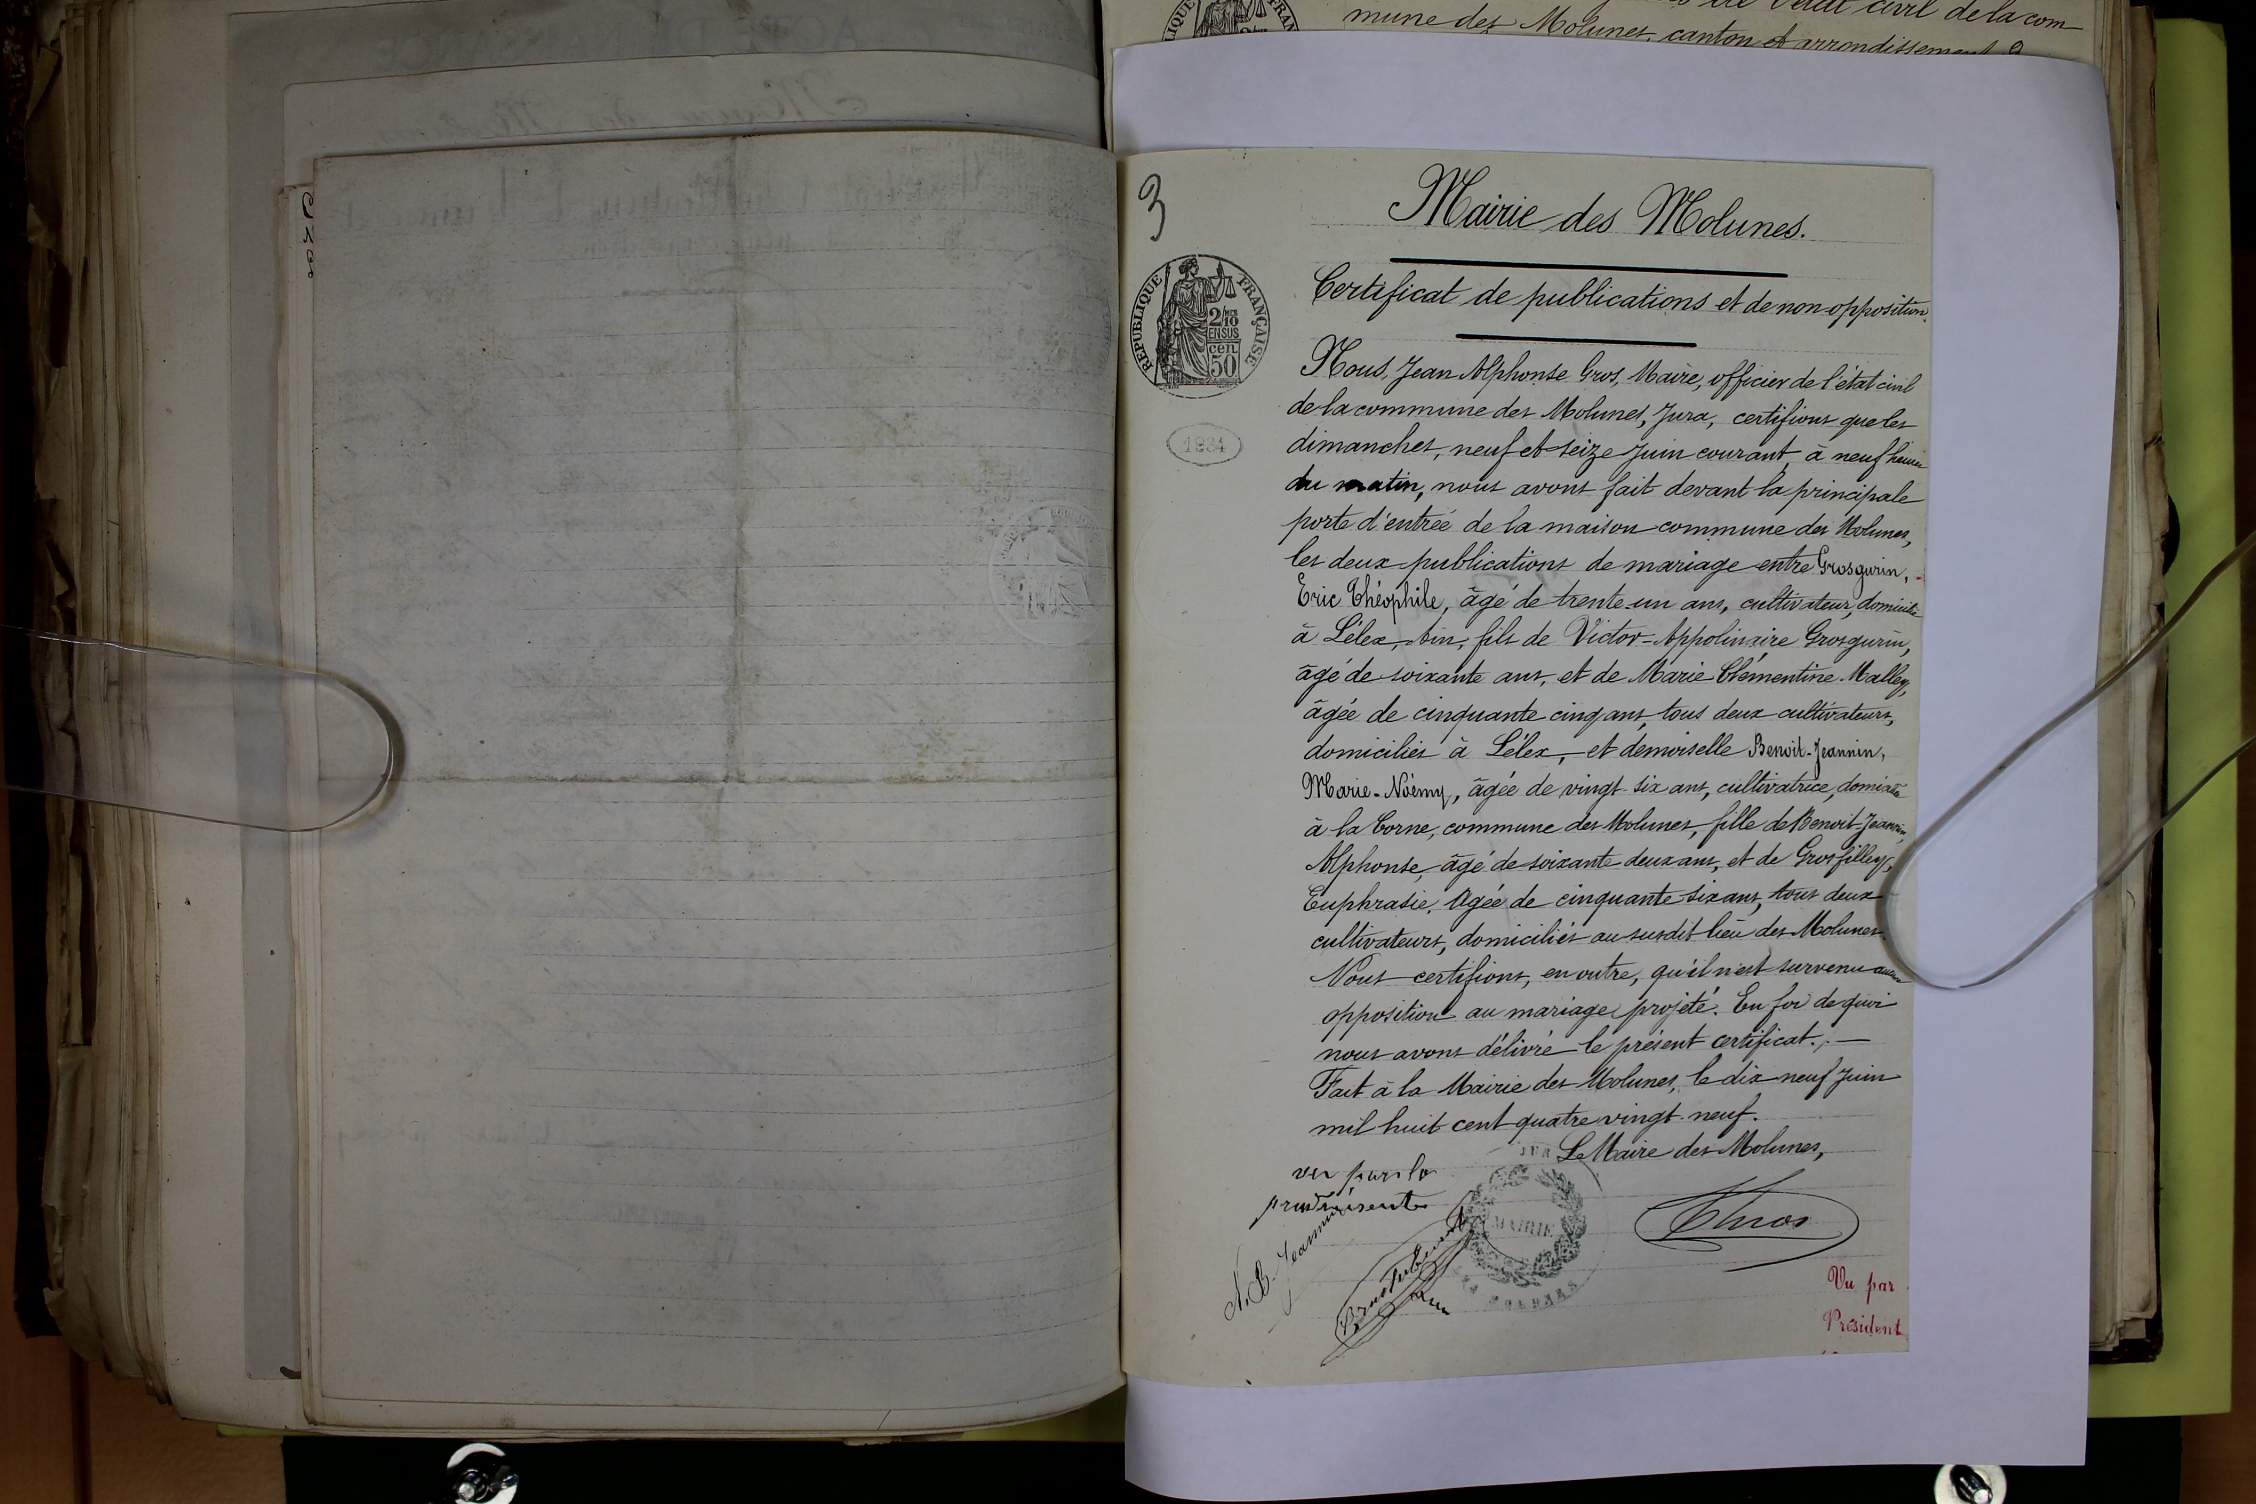 mune des Molunes, canton et arrondissement
3
Mairie des Molunes.
Certificat de publications et de non-opposition.
RÉPUBLIQUE FRANÇAISE
2/10
EN SUS
cen.
50
1834
Nous, Jean Alphonse Gros, Maire, officier de l'état civil
de la commune des Molunes, Jura, certifions que les
dimanches, neuf et seize Juin courant, à neuf heures
du matin, nous avons fait devant la principale
porte d'entrée de la maison commune des Molunes,
les deux publications de mariage entre Grosgurin,
Eric Théophile, âgé de trente-un ans, cultivateur, domicilié
à Lélex, Ain, fils de Victor-Appolinaire Grosgurin,
âgé de soixante ans, et de Marie Clémentine Malley,
âgée de cinquante cinq ans, tous deux cultivateurs,
domiciliés à Lélex, et demoiselle Benoit-Jeannin,
Marie-Noémy, âgée de vingt-six ans, cultivatrice,
à la Corne, commune des Molunes, fille de Benoit-Jeannin,
Alphonse, âgé de soixante deux ans, et de Grosfilley,
Euphrasie, âgée de cinquante six ans, tous deux
cultivateurs, domiciliés au susdit lieu des Molunes.
Nous certifions, en outre, qu'il n'est survenu aucune
opposition au mariage projeté. En foi de quoi
nous avons délivré le présent certificat.
Fait à la Mairie des Molunes, le dix neuf Juin
mil huit cent quatre vingt-neuf.
Le Maire des Molunes,
vu par le
MAIRIE
N. B. Jeannin
Vu par
Président